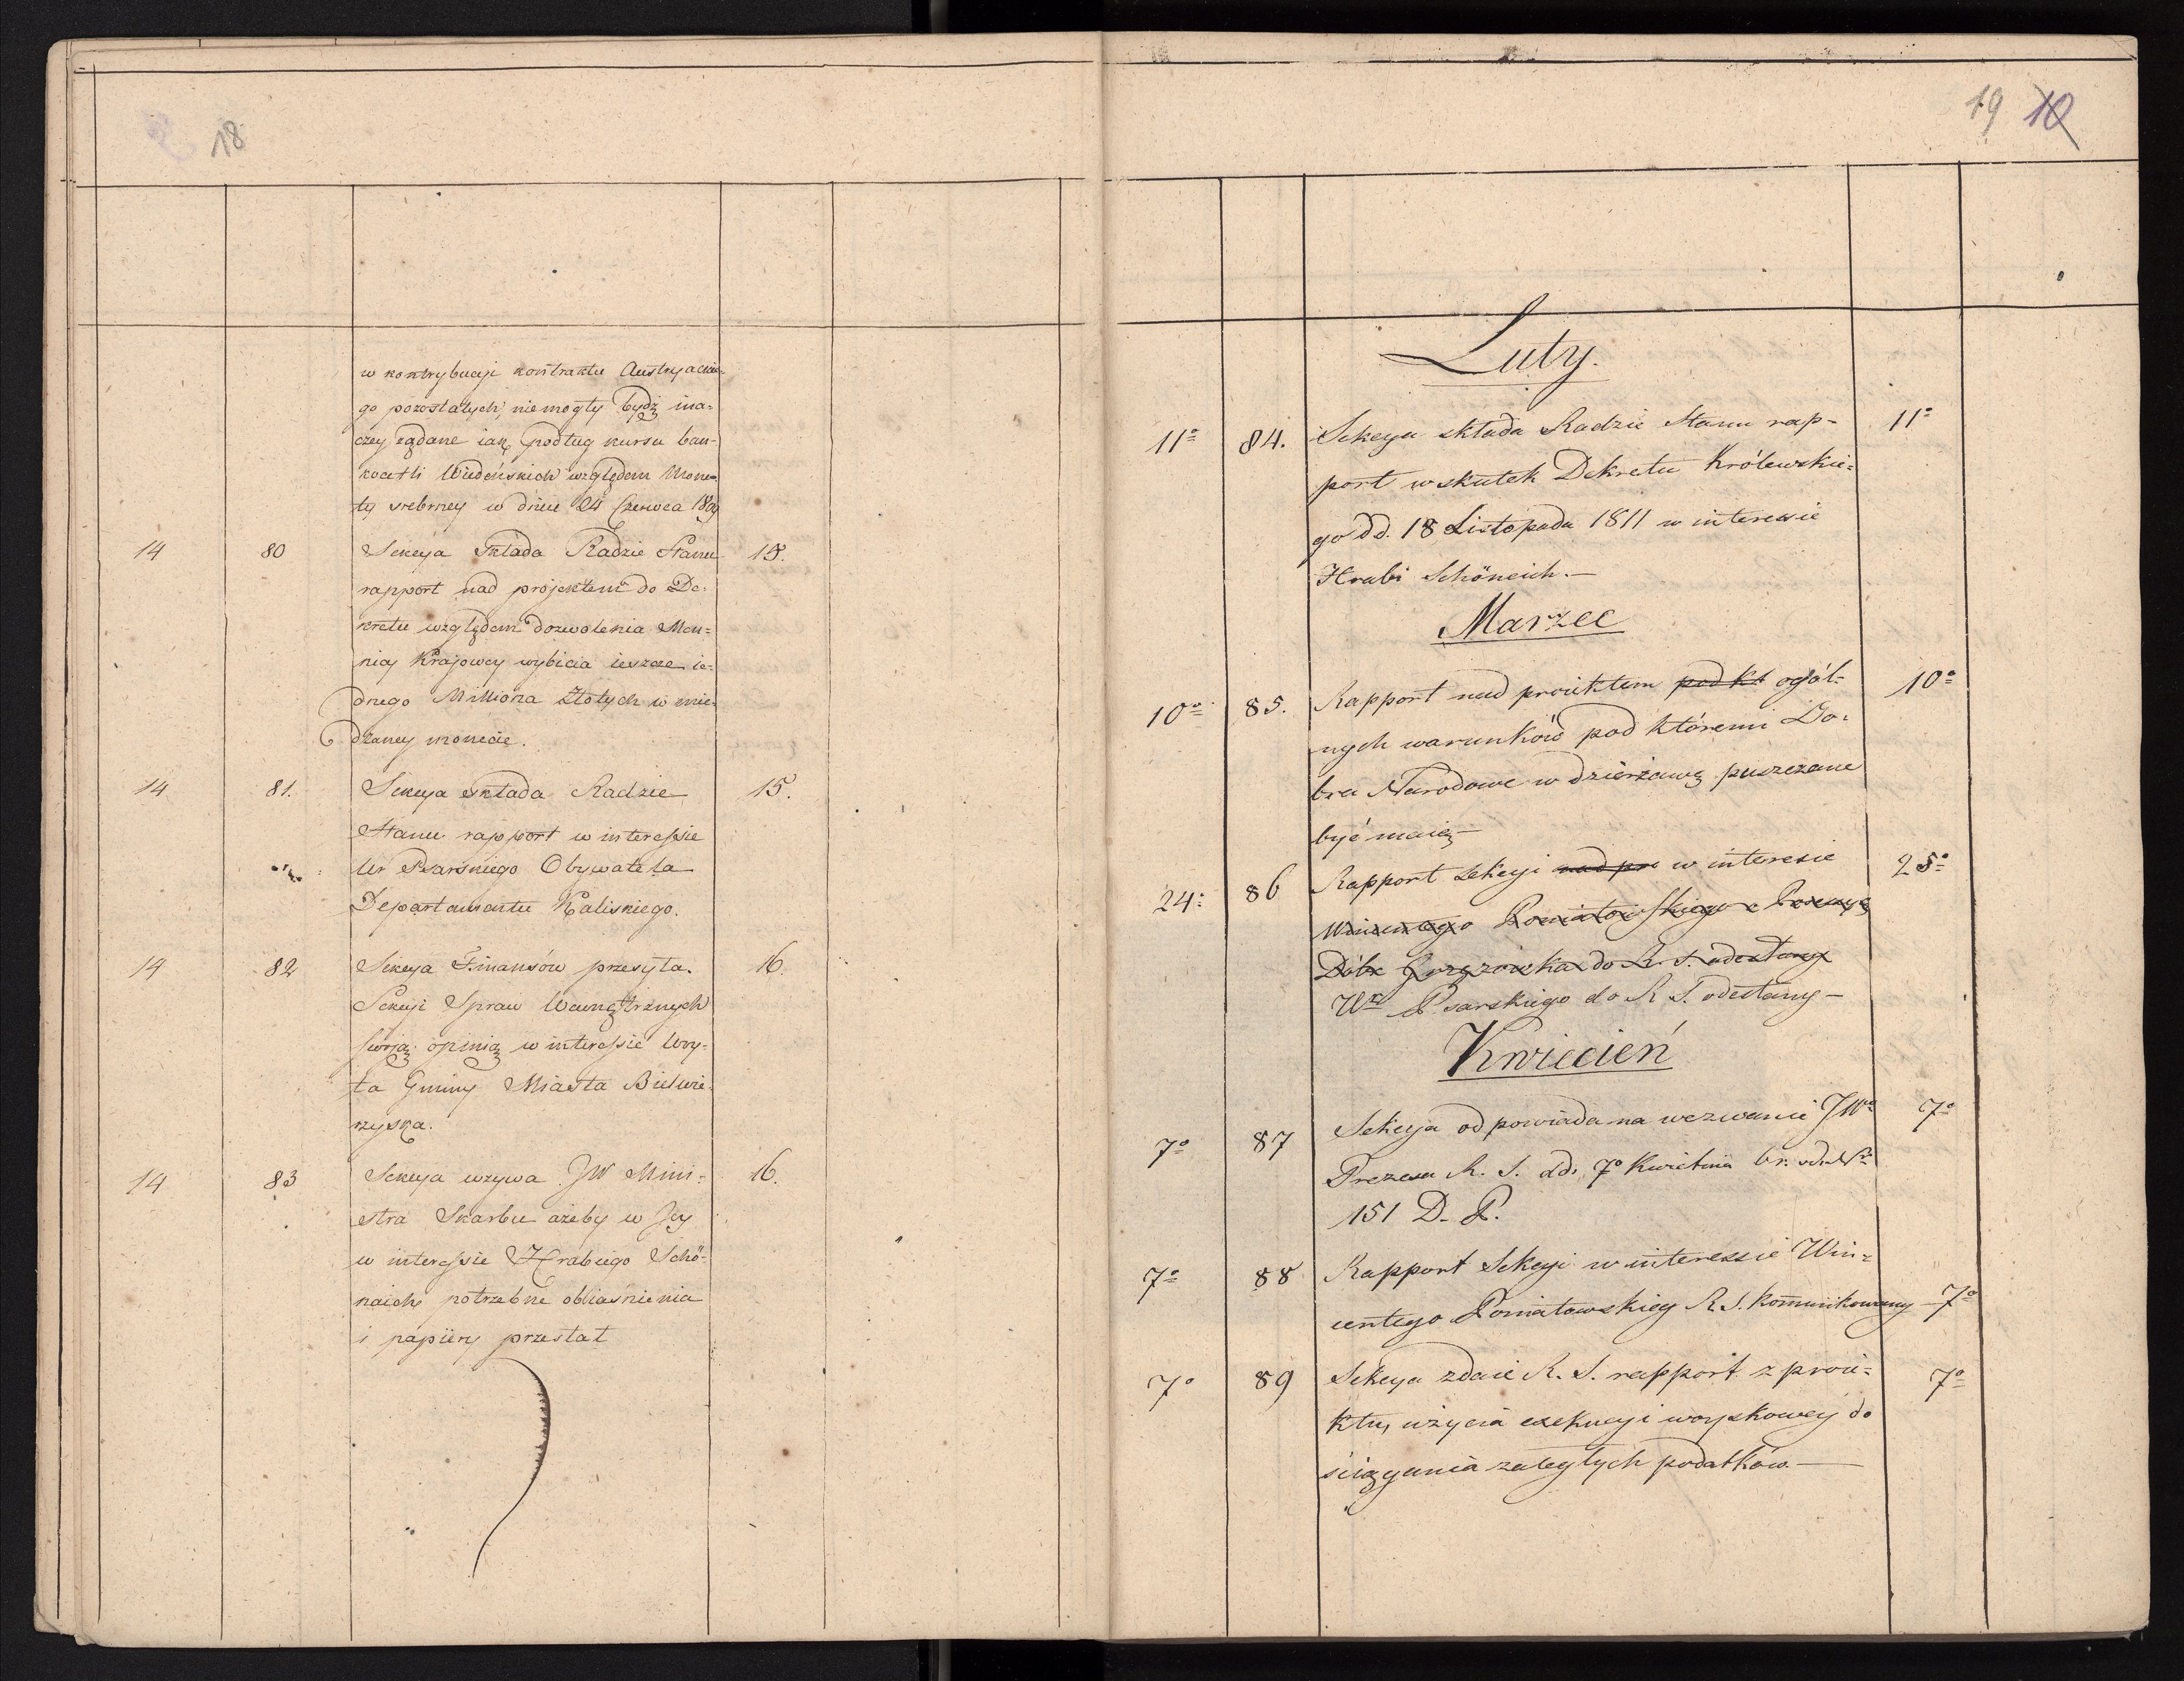 18
w kontrybucji kontraktu Austryackie-
go pozostałych, niemogły bydź ina-
czey żądane iak podług kursu ban-
kocetli Wiedeńskich względem Mone-
ty srebrney w dniu 24 Czerwca 1809
14 80 Sekcya składa Radzie Stanu 15.
rapport nad projektem do De-
kretu względem dozwolenia Men-
nicy Krajowey wybicia ieszcze ie-
dnego Milliona złotych w mie-
dzianey monecie.
14 81. Sekcya składa Radzie 15.
Stanu rapport w interessie
Ur Psarskiego Obywatela
Departamentu Kaliskiego.
14 82 Sekcya Finansów przesyła 16.
Sekcyi Spraw Wewnętrznych
swoją opinią w interessie Woy-
ta Gminy Miasta
14 83 Sekcya wzywa JW Mini- 16.
stra Skarbu ażeby w Jey
w interessie Hrabiego Schö-
naich potrzebne obiaśnienia
i papiery przesłał
19 10
Luty.
11º 84. Sekcya składa Radzie Stanu rap- 11º
port w skutek Dekretu Królewskie-
go dd. 18 Listopada 1811 w interesie
Hrabi Schöneich.—
Marzec
10º 85. Rapport nad proiektem pod kt ogól- 10º
nych warunków pod któremi Do-
bra Narodowe w dzierżawę puszczane
być maią—
24º 86 Rapport Sekcyi nad pr w interesie 25º
Winientego Poniatowskiego
Dóbr do R. S. odesłany
Wº Psarskiego do R S. odesłany—
Kwiecień
7º 87 Sekcya odpowiada na wezwanie JWº 7º
Prezesa R. S. dd. 7º Kwietnia br.
151 D. P.
7º 88 Rapport Sekcyi w interessie Win-
centego Poniatowskieg R S. kommunikowany 7º
7º 89 Sekcya zdaie R. S. rapport z proie- 7º
ktu, użycia exekucyi woyskowey do
ściągania zaległych podatków—